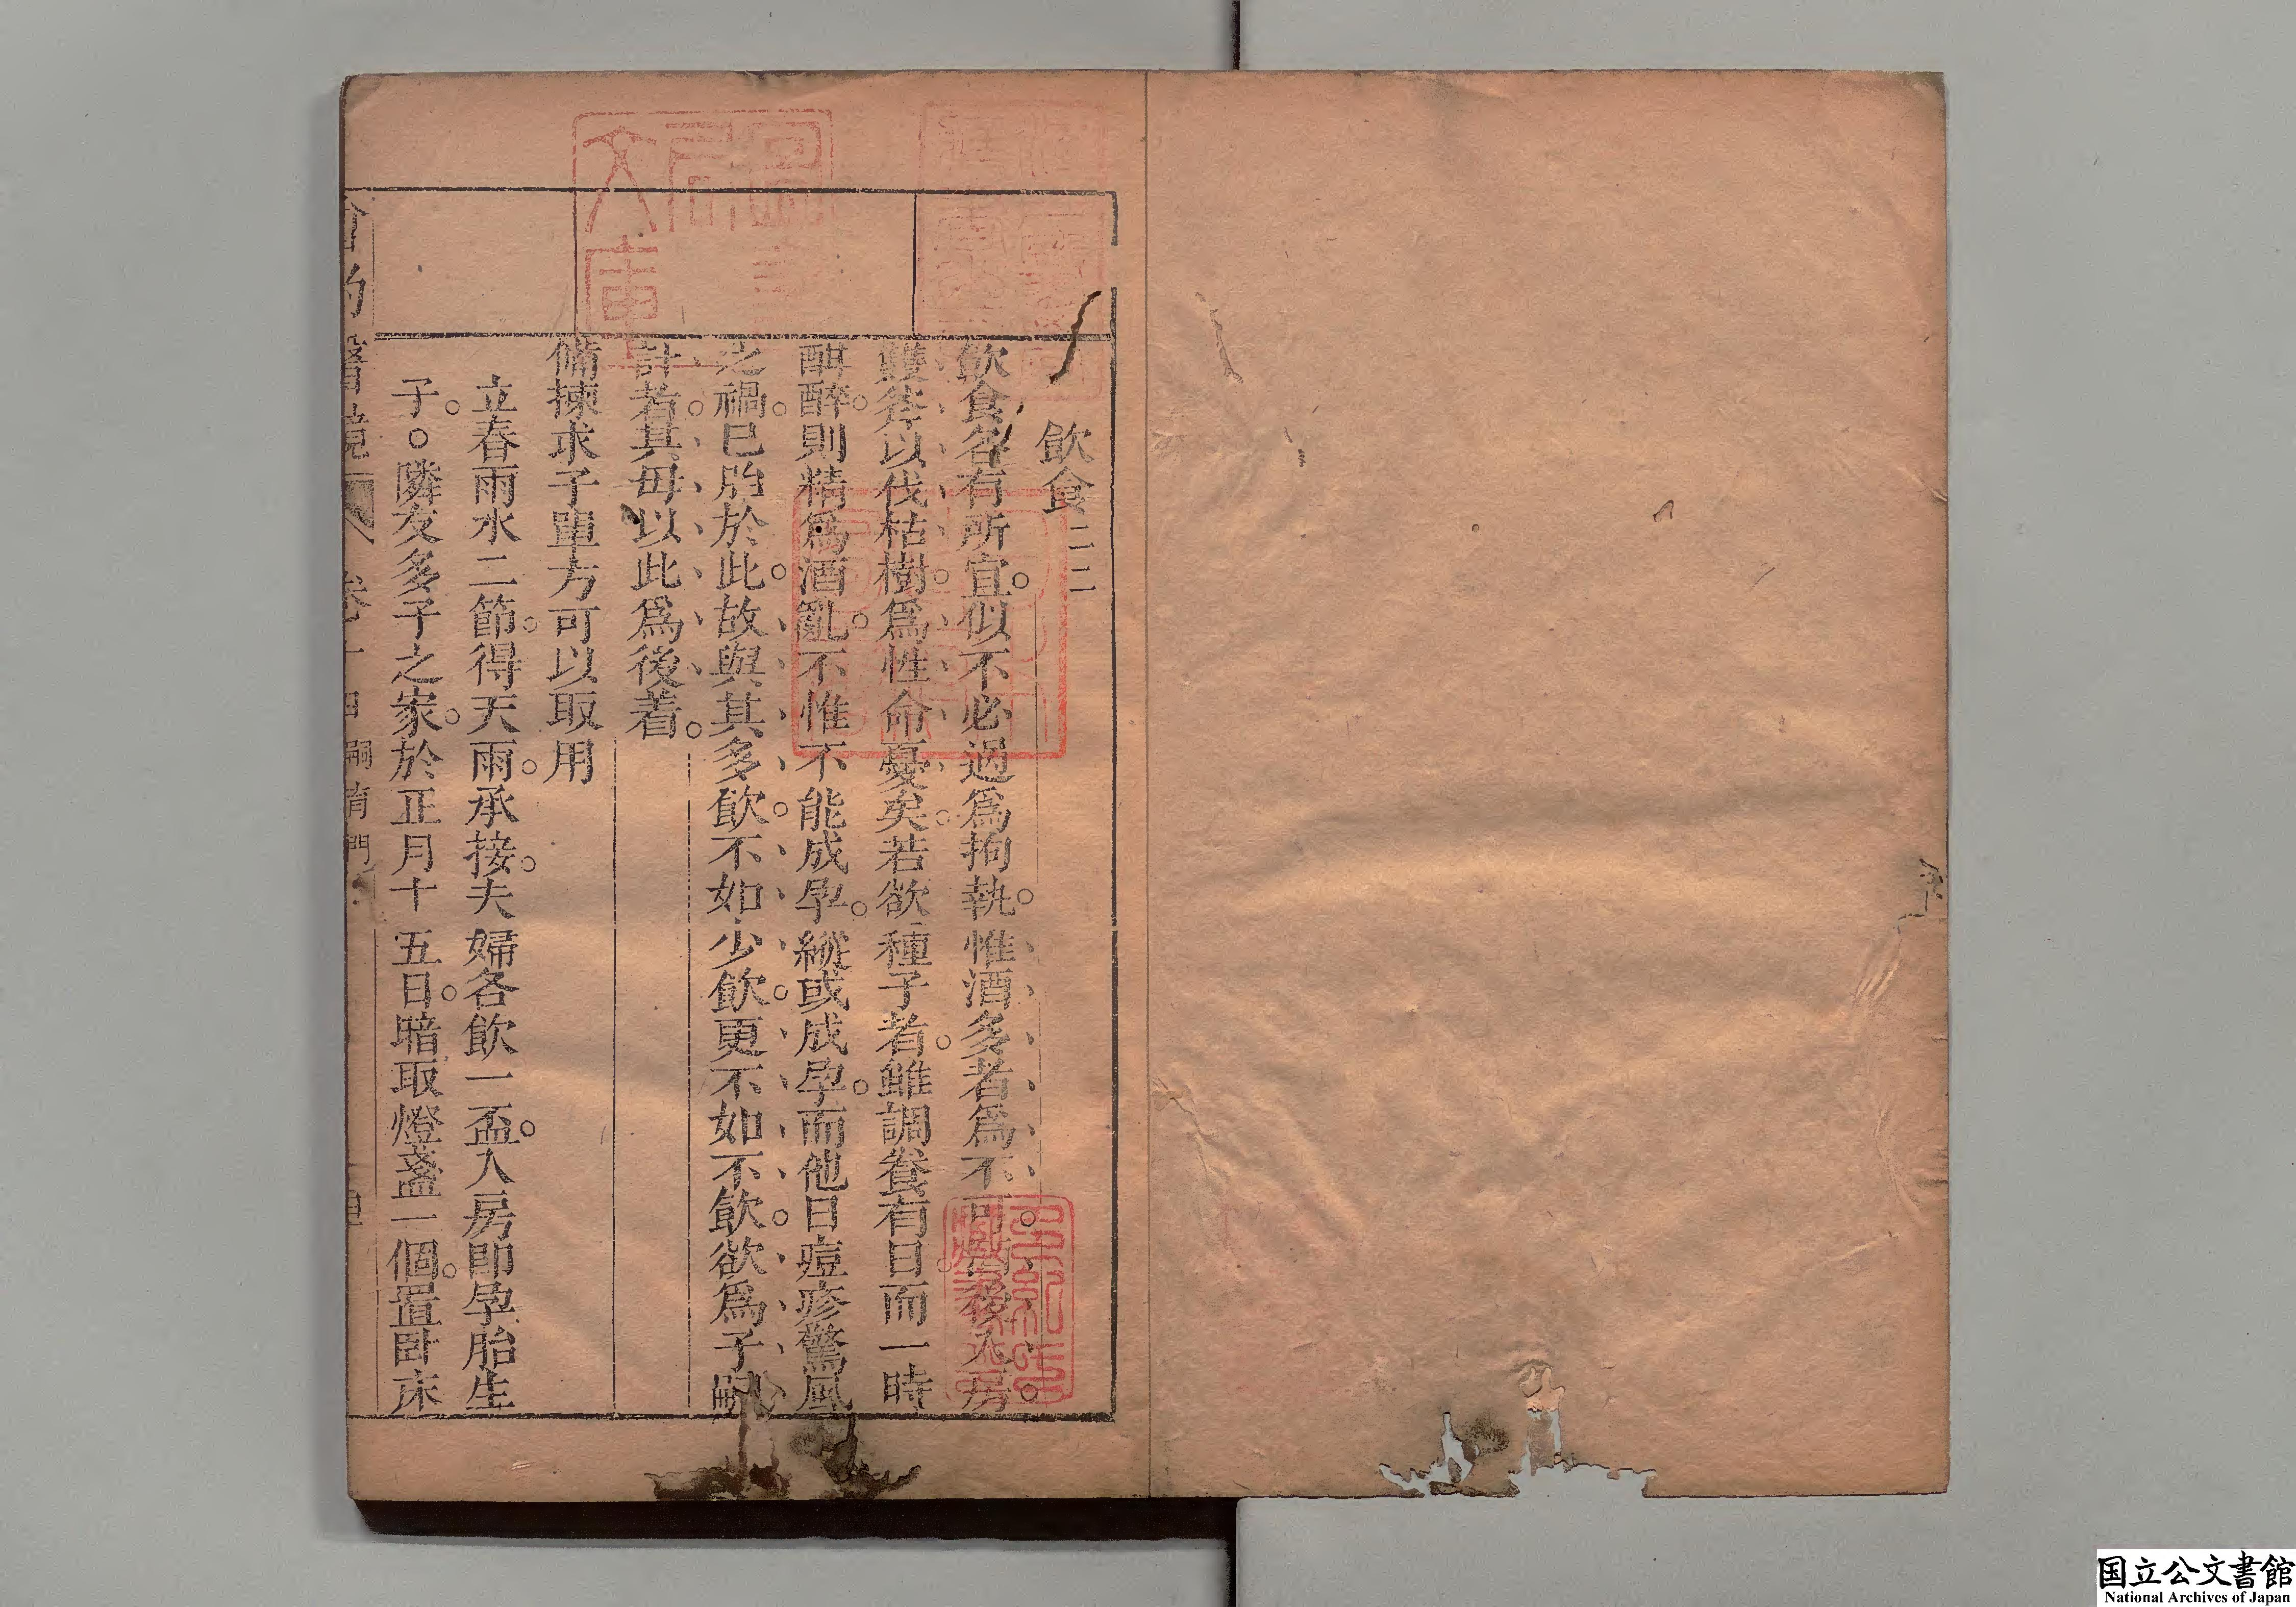 飲食二二
飲食各有所宜。似不必過爲拘執。惟酒多者爲不可。酒後入房。
雙斧以伐枯樹。爲性命憂矣。若欲種子者。雖調養有日。而一時
酣醉。則精爲酒亂。不惟不能成孕。縱或成孕。而他日痘疹驚風
之禍。已胎於此。故與其多飲。不如少飲。更不如不飲。欲爲子嗣
計者。其毋以此爲後着。
備揀求子單方可以取用
立春雨水二節。得天雨。承接。夫婦各飲一盃。入房即孕胎生
子。○隣友多子之家。於正月十五日。暗取燈盞一個。置卧床
醫鏡 卷十四 嗣育門
国立公文書館
National Archives of Japan